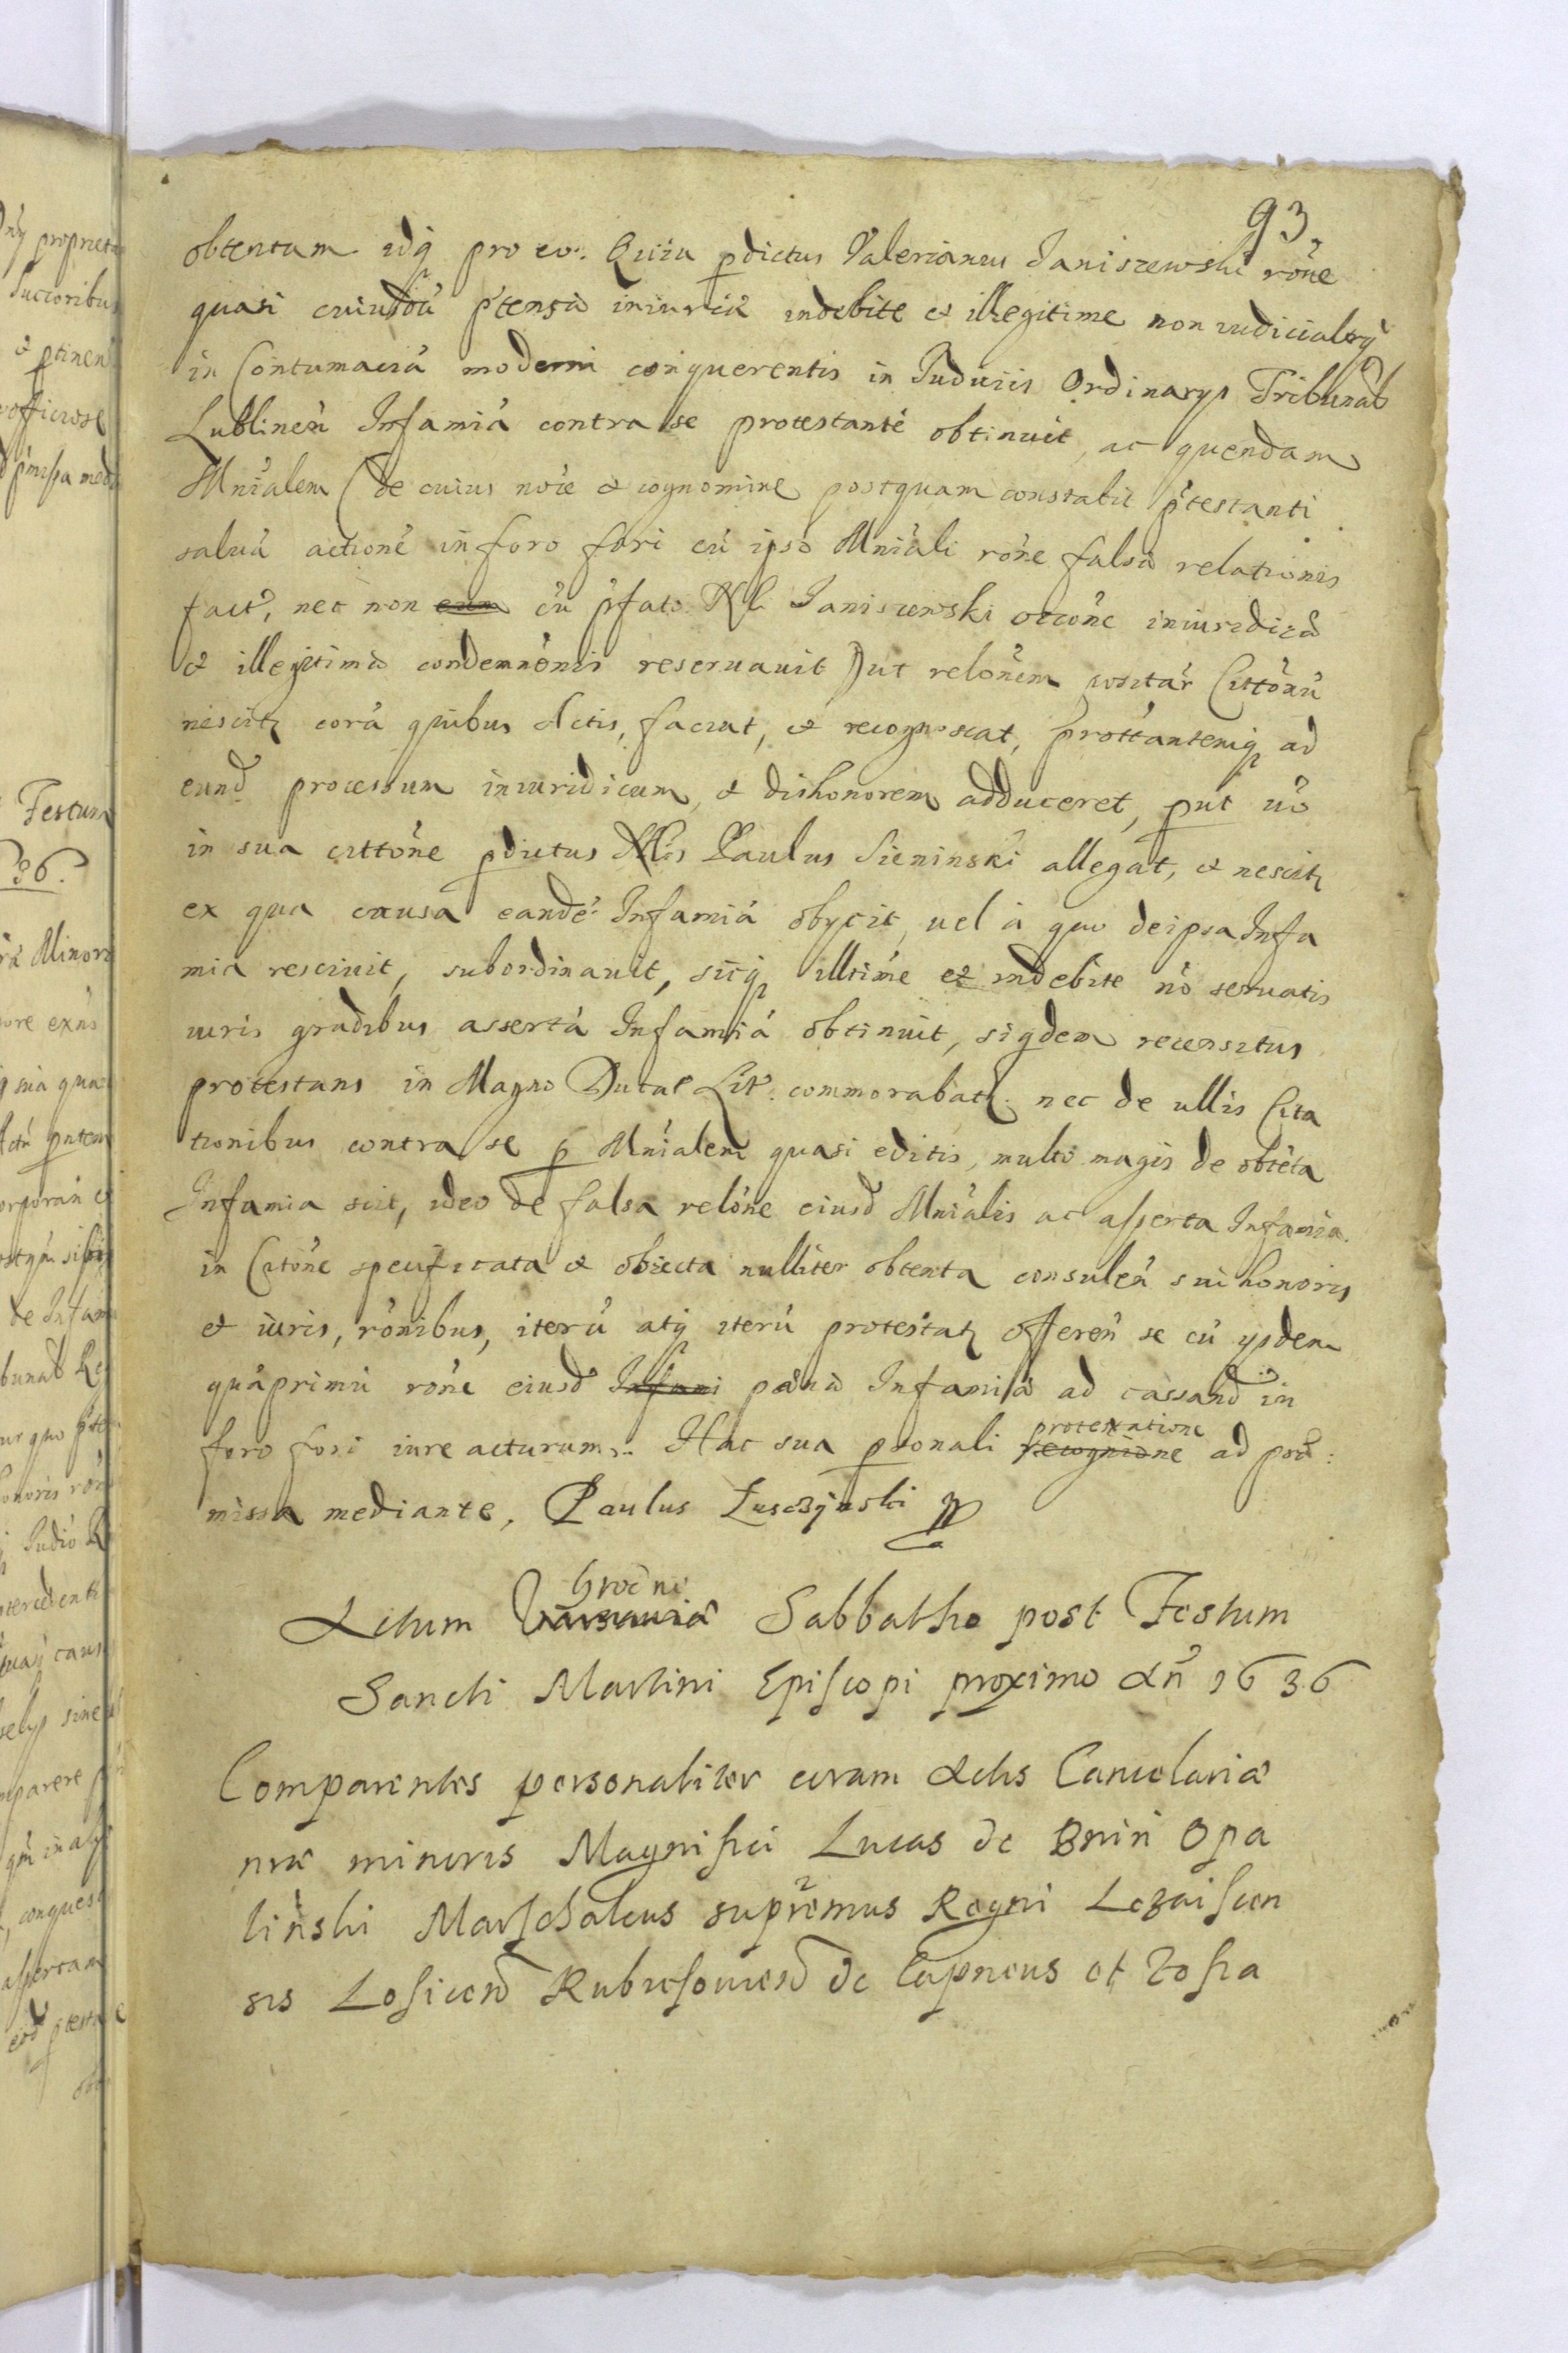 93
obtentam idq̃ pro eo: Quia p̱dictus Valerianus Janiszewski rõne
quasi cuiusdã p̃tensæ iniuriæ indebite et illegitime non iudicialr̃q̃
in Contumaciã moderni conquerentis in Judicijs Ordinarys Tribunal
Lublinen̄ Infamiã contra se protestantẽ obtinuit, ac quendam
Mñialem (de cuius noĩe et cognomine postquam constabit p̃testanti
saluã actionẽ in foro fori cũ ipso Mniãli rõne falsæ relationis
fact, nec non cũ p̃fato Nl. Janiszewski õccõne iniuridicæ
et illegitimæ condemnõnis reseruauit) ut relõnem Cittõnũ
nescitʒ corã quibus Actis, faciat, et recognoscat, prottantemq̃ ad
eund processum iniuridicum, et dishonorem adduceret, p̱ut uõ
in sua cittõne p̱dictus Nlis Paulus Sieninski allegat, et nescitʒ
ex qua causa eandẽ Infamiã obycit, uel à quo de ipsa Infa
mia resciuit, subordinauit, sicq̃ illtime et indebite nõ seruatis
iuris gradibus assertã Infamiã obtinuit, siq̃dem recensitus
protestans in Magno Ducat Lit: commorabatʒ nec de ullis Cita
tionibus contra se p̱ Mñialem quasi editis, multo magis de obtẽta
Infamia scit, ideo de falsa relõne eiusd Mniãlis ac asserta Infamia
in Citõne specificata et obiecta nulliter obtenta consulen̄ sui honoris
et iuris, rõnibus, iterũ atq̃ iterũ protestatʒ offeren̄ se cũ ysdem
quãprimũ rõne eiusd Infami pœnæ Infamiæ ad cassand in
foro fori iure acturum. Hac sua p̱sonali recognione protestatione ad præ:
missa mediante, Paulus Łusczynski

Actum Varsauiæ Grodnæ Sabbatho post Festum
Sancti Martini Episcopi proximo Añ 1636
Comparentes personaliter coram Actis Cancelariæ
nræ minoris Magnifici Lucas de Bnin Opa
linski Marschalcus supremus Regni Lezaiscen
sis Losicen̄ Rubieszouien̄ de et Zofia